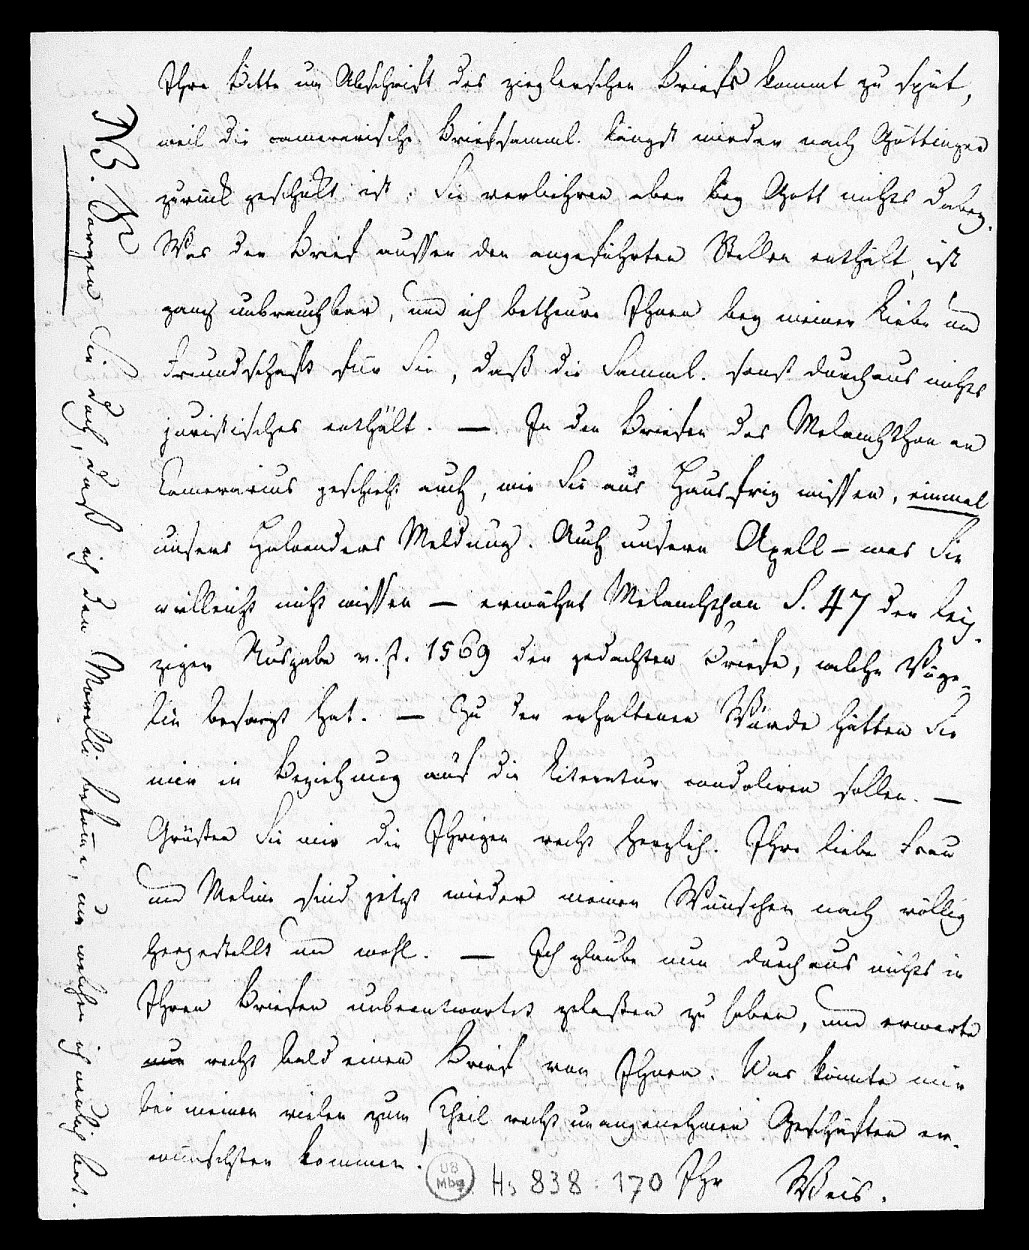 Ihre Bitte um Abschrift des zieglerschen Briefs kommt zu spät,
weil die camerarische Briefsamml. längst wieder nach Göttingen
zurück geschikt ist; Sie verliehren aber bey Gott nichts dabey.
Was der Brief ausser den angeführten Stellen enthält, ist
ganz unbrauchbar, und ich betheure Ihnen bey meiner Liebe und
Freundschaft für Sie, daß die Samml. sonst durchaus nichts
juristisches enthält. — In den Briefen des Melanchthon an
Camerarius geschieht auch, wie Sie aus Hausfriz wissen, einmal
unsers Haloanders Meldung. Auch unsern Apell – was Sie
vielleicht nicht wissen – erwähnt Melanchthon S. 47 der Leip-
ziger Ausgabe v. J. 1569 der gedachten Briefe, welche Vöge-
lin besorgt hat. — Zu der erhaltenen Würde hätten Sie
mir in Beziehung auf die Literatur condoliren sollen. —
Grüßen Sie mir die Ihrigen recht herzlich. Ihre liebe Frau
und Meline sind jetzt wieder meinen Wünschen nach völlig
hergestellt und wohl. — Ich glaube nun durchaus nichts in
Ihren Briefen unbeantwortet gelaßen zu haben, und erwarte
nun recht bald einen Brief von Ihnen. Was könnte mir
bei meinen vielen zum Theil recht unangenehmen Geschäften er-
wünschter kommen!
Ihr Weis.
NB. Sorgen Sie doch, daß ich den Morelli bekomme, um welchen ich neulich bat.
UB Mbg
Hs 838 : 170